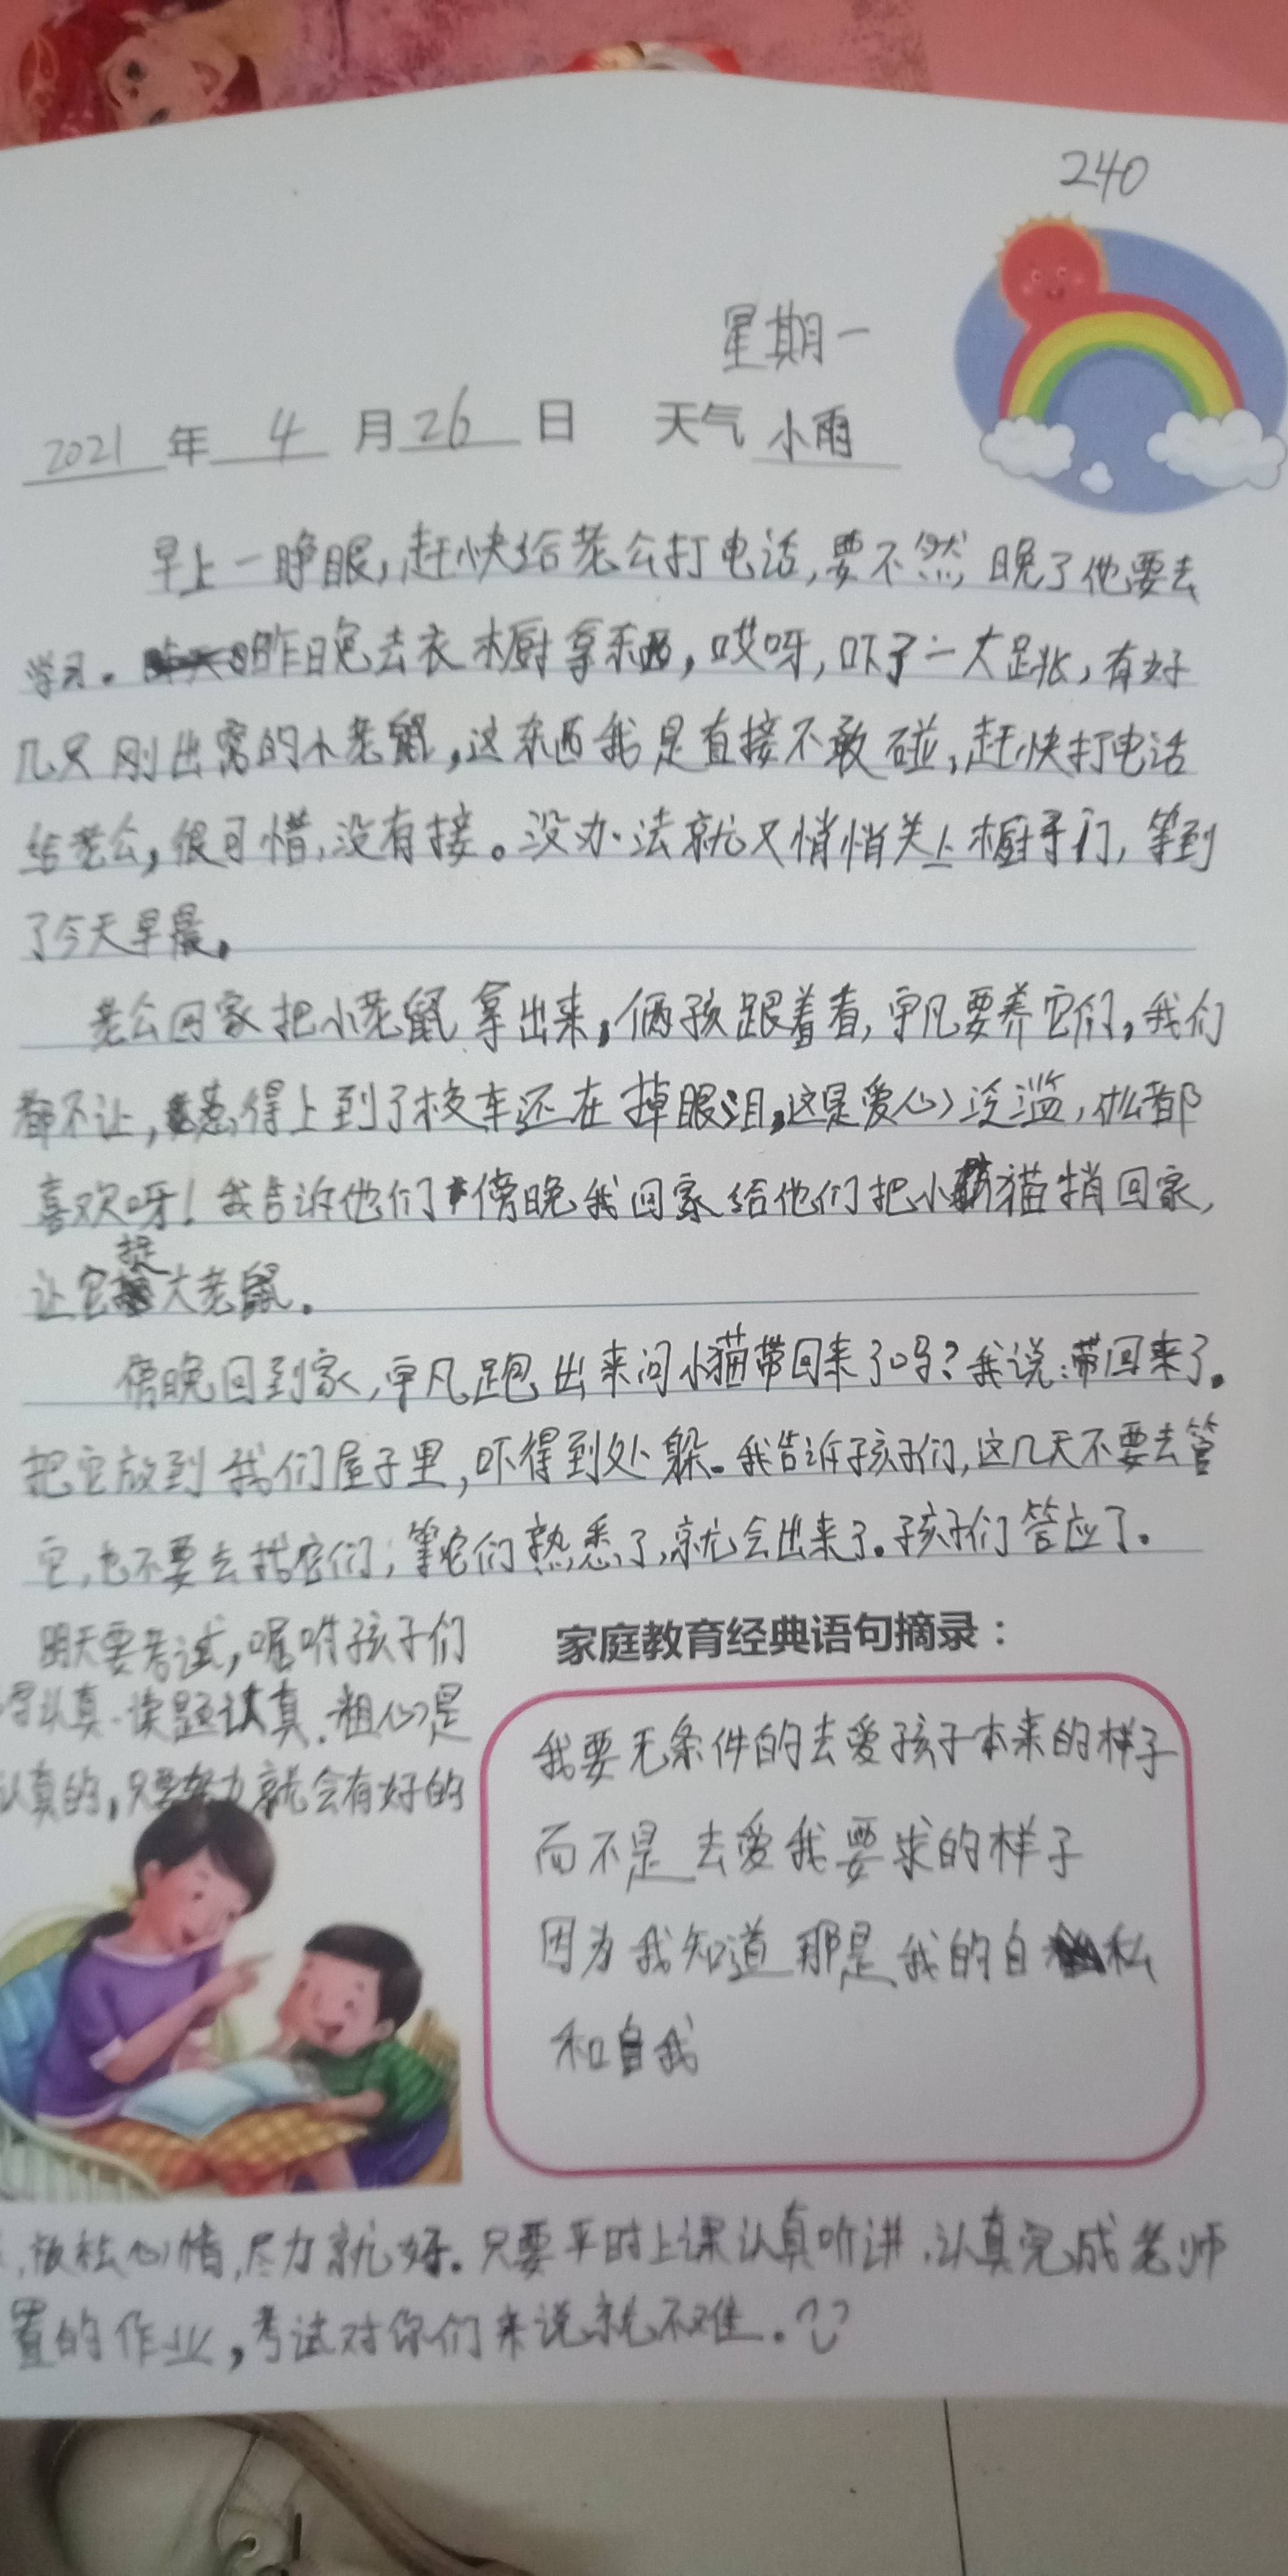 240
星期一
2021年4月26日 天气 小雨
早上一睁眼,赶快给老公打电话,要不然,晚了他要去
学习。昨晚去衣橱拿东西,哎呀,吓了一大跳,有好
几只刚出窝的小老鼠,这东西我是直接不敢碰,赶快打电话
给老公,很可惜,没有接。没办法就又悄悄关上橱子门,等到
了今天早晨。
老公回家把小老鼠拿出来,俩孩跟着看,宇凡要养它们,我们
都不让,惹得上到了校车还在掉眼泪,这是爱心泛滥,什么都
喜欢呀!我告诉他们傍晚我回家给他们把小猫捎回家,
让它捉大老鼠。
傍晚回到家,宇凡跑出来问小猫带回来了吗?我说:带回来了。
把它放到我们屋子里,吓得到处躲。我告诉孩子们,这几天不要去管
它,也不要去找它们,等它们熟悉了,就会出来了。孩子们答应了。
明天要考试,嘱咐孩子们
得认真.读题认真.粗心是
认真的,只要努力就会有好的
家庭教育经典语句摘录:
我要无条件的去爱孩子本来的样子
而不是去爱我要求的样子
因为我知道那是我的自私
和自我
,放松心情,尽力就好。只要平时上课认真听讲,认真完成老师
置的作业,考试对你们来说就不难。